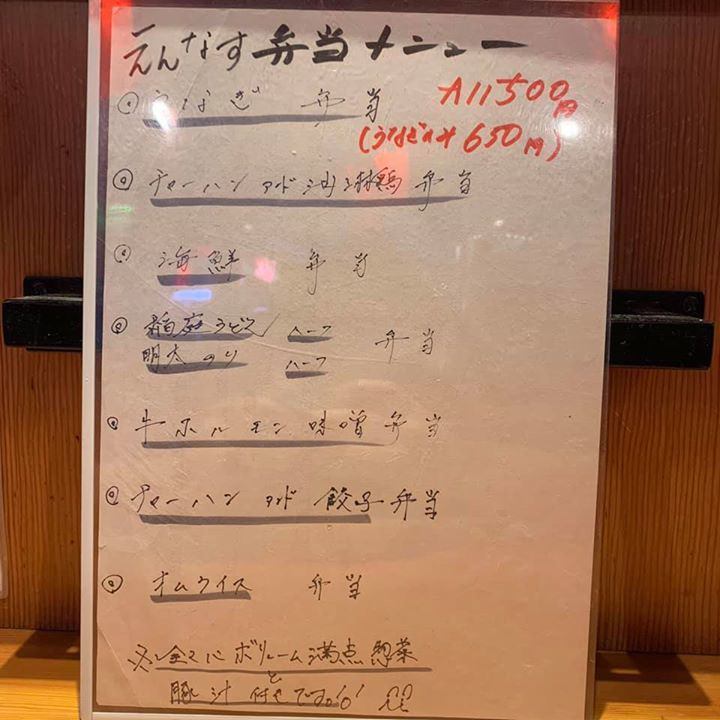 えんなす弁当メニュー
◎うなぎ 弁当 All 500円
(うなぎのみ 650円)
◎チャーハン アンド 油淋鶏 弁当
◎海鮮 弁当
◎稲庭うどん ハーフ 弁当
明太のり ハーフ
◎牛ホルモン味噌弁当
◎チャーハン アンド 餃子弁当
◎オムライス 弁当
※全てにボリューム満点惣菜
と
豚汁 付きです。